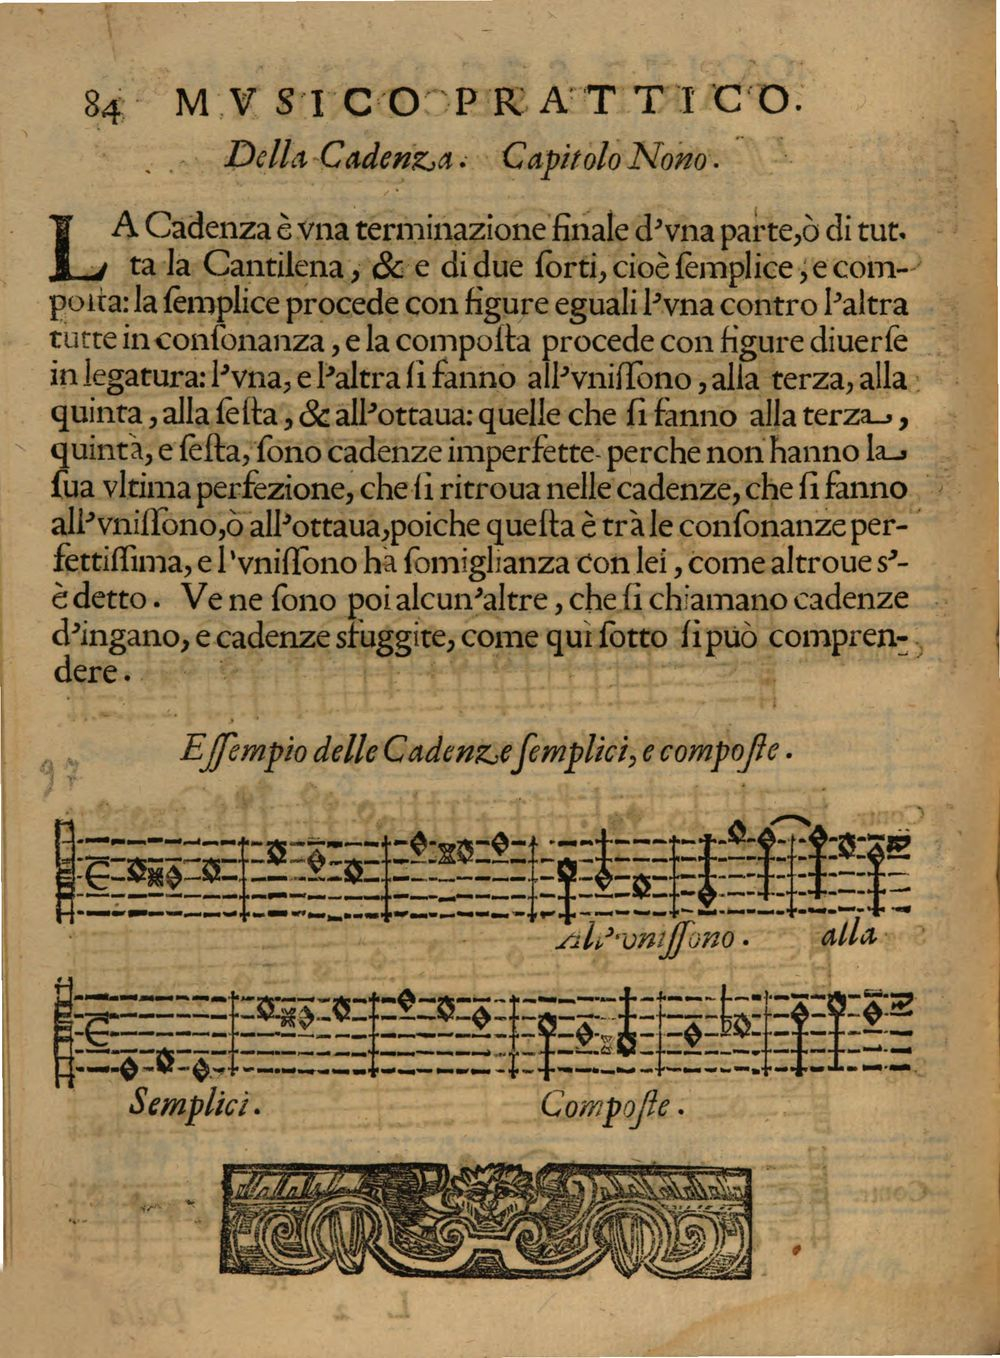 84 MVSICO PRATTICO.
Della Cadenza. Capitolo Nono.
LA Cadenza è vna terminazione finale d'vna parte, ò di tut-
ta la Cantilena, & e di due ſorti, cioè ſemplice, e com-
poſta: la ſemplice procede con figure eguali l'vna contro l'altra
tutte in conſonanza, e la compoſta procede con figure diuerſe
in legatura: l'vna, e l'altra ſi fanno all'vniſſono, alla terza, alla
quinta, alla ſeſta, & all'ottaua: quelle che ſi fanno alla terza,
quintà, e ſeſta, ſono cadenze imperfette perche non hanno la
ſua vltima perfezione, che ſi ritroua nelle cadenze, che ſi fanno
all'vniſſono, ò all'ottaua, poiche queſta è trà le conſonanze per-
fettiſſima, e l'vniſſono hà ſomiglianza con lei, come altroue s'-
è detto. Ve ne ſono poi alcun'altre, che ſi chiamano cadenze
d'ingano, e cadenze sfuggite, come quì ſotto ſi può compren-
dere.
Eſſempio delle Cadenze ſemplici, e compoſte.
97
All'vniſſono. alla
Semplici. Compoſte.